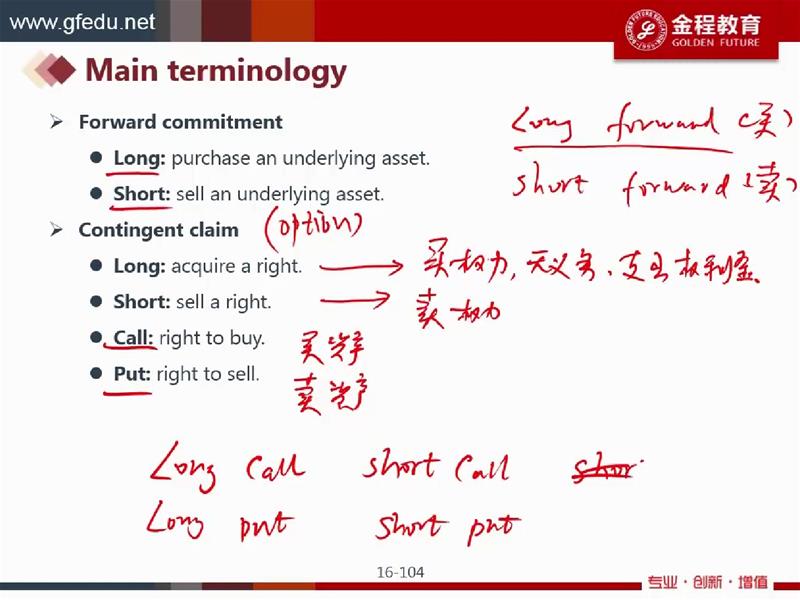 www.gfedu.net
金程教育
GOLDEN FUTURE
Main terminology
Forward commitment
Long forward (买)
Long: purchase an underlying asset.
short forward (卖)
Short: sell an underlying asset.
Contingent claim (option)
Long: acquire a right. → 买权力, 无义务、支出权利金
Short: sell a right. → 卖权力
Call: right to buy. 买资产
Put: right to sell. 卖资产
Long call short call shor
Long put short put
16-104
专业·创新·增值